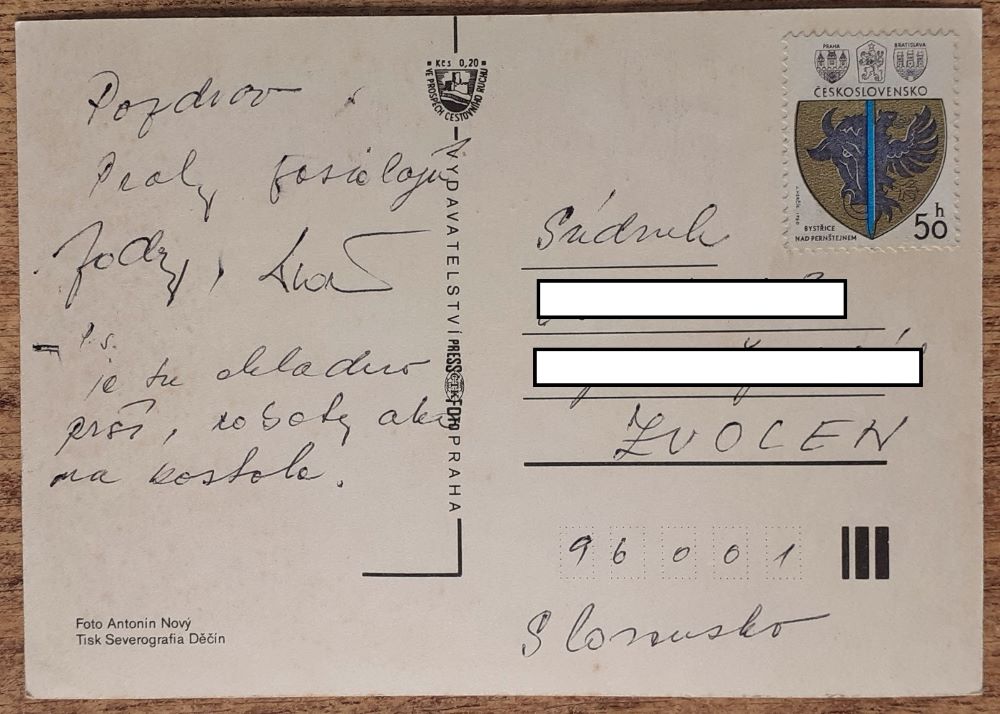 Pozdrav
Prahy
P.s.
je tu chladno
prší, roboty ako
na kostole.
Kčs 0,20
VE PROSPĚCH CESTOVNÍHO RUCHU
VYDAVATELSTVÍ PRESSFOTO PRAHA
Foto Antonín Nový
Tisk Severografia Děčín
PRAHA
BRATISLAVA
ČESKOSLOVENSKO
BYSTŘICE
NAD PERNŠTEJNEM
50 h
Súdruh
ZVOLEN
96001
Slovensko